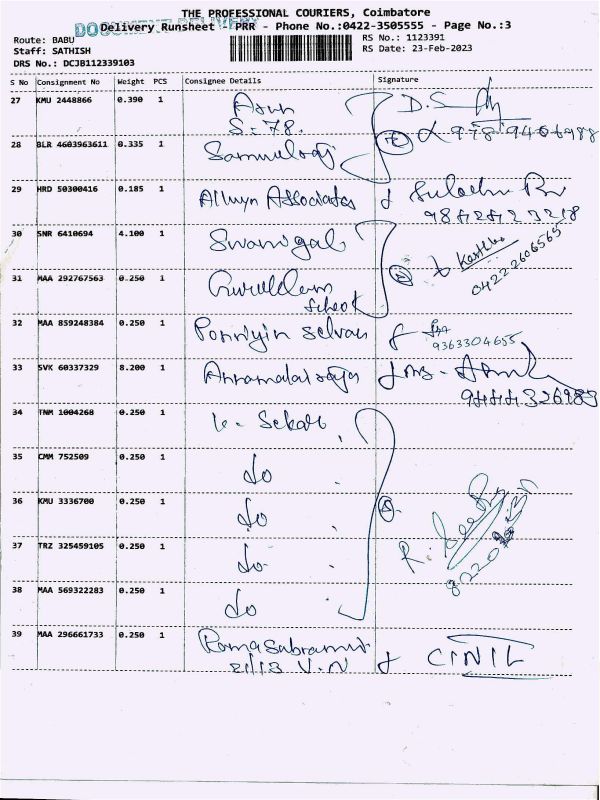 THE PROFESSIONAL COURIERS, Coimbatore
DOCUMENT DELIVERY
Delivery Runsheet - PRR - Phone No.:0422-3505555 - Page No.:3
Route: BABU
RS No.: 1123391
Staff: SATHISH
RS Date: 23-Feb-2023
DRS No.: DCJB112339103
S No Consignment No Weight PCS Consignee Details Signature
27 KMU 2448866 0.390 1 D.S
S-78.
28 BLR 4603963611 0.335 1
29 HRD 50300416 0.185 1 Allwyn Associates
30 SNR 6410694 4.100 1
31 MAA 292767563 0.250 1
04222606565
32 MAA 859248384 0.250 1 Ponniyin Selvan
9363304655
33 SVK 60337329 8.200 1 Annamalai
9444326983
34 TNM 1004268 0.250 1 Sekar
35 CMM 752509 0.250 1 do
36 KMU 3336700 0.250 1 do
37 TRZ 325459105 0.250 1 do
38 MAA 569322283 0.250 1 do
39 MAA 296661733 0.250 1 CINIL
V.N